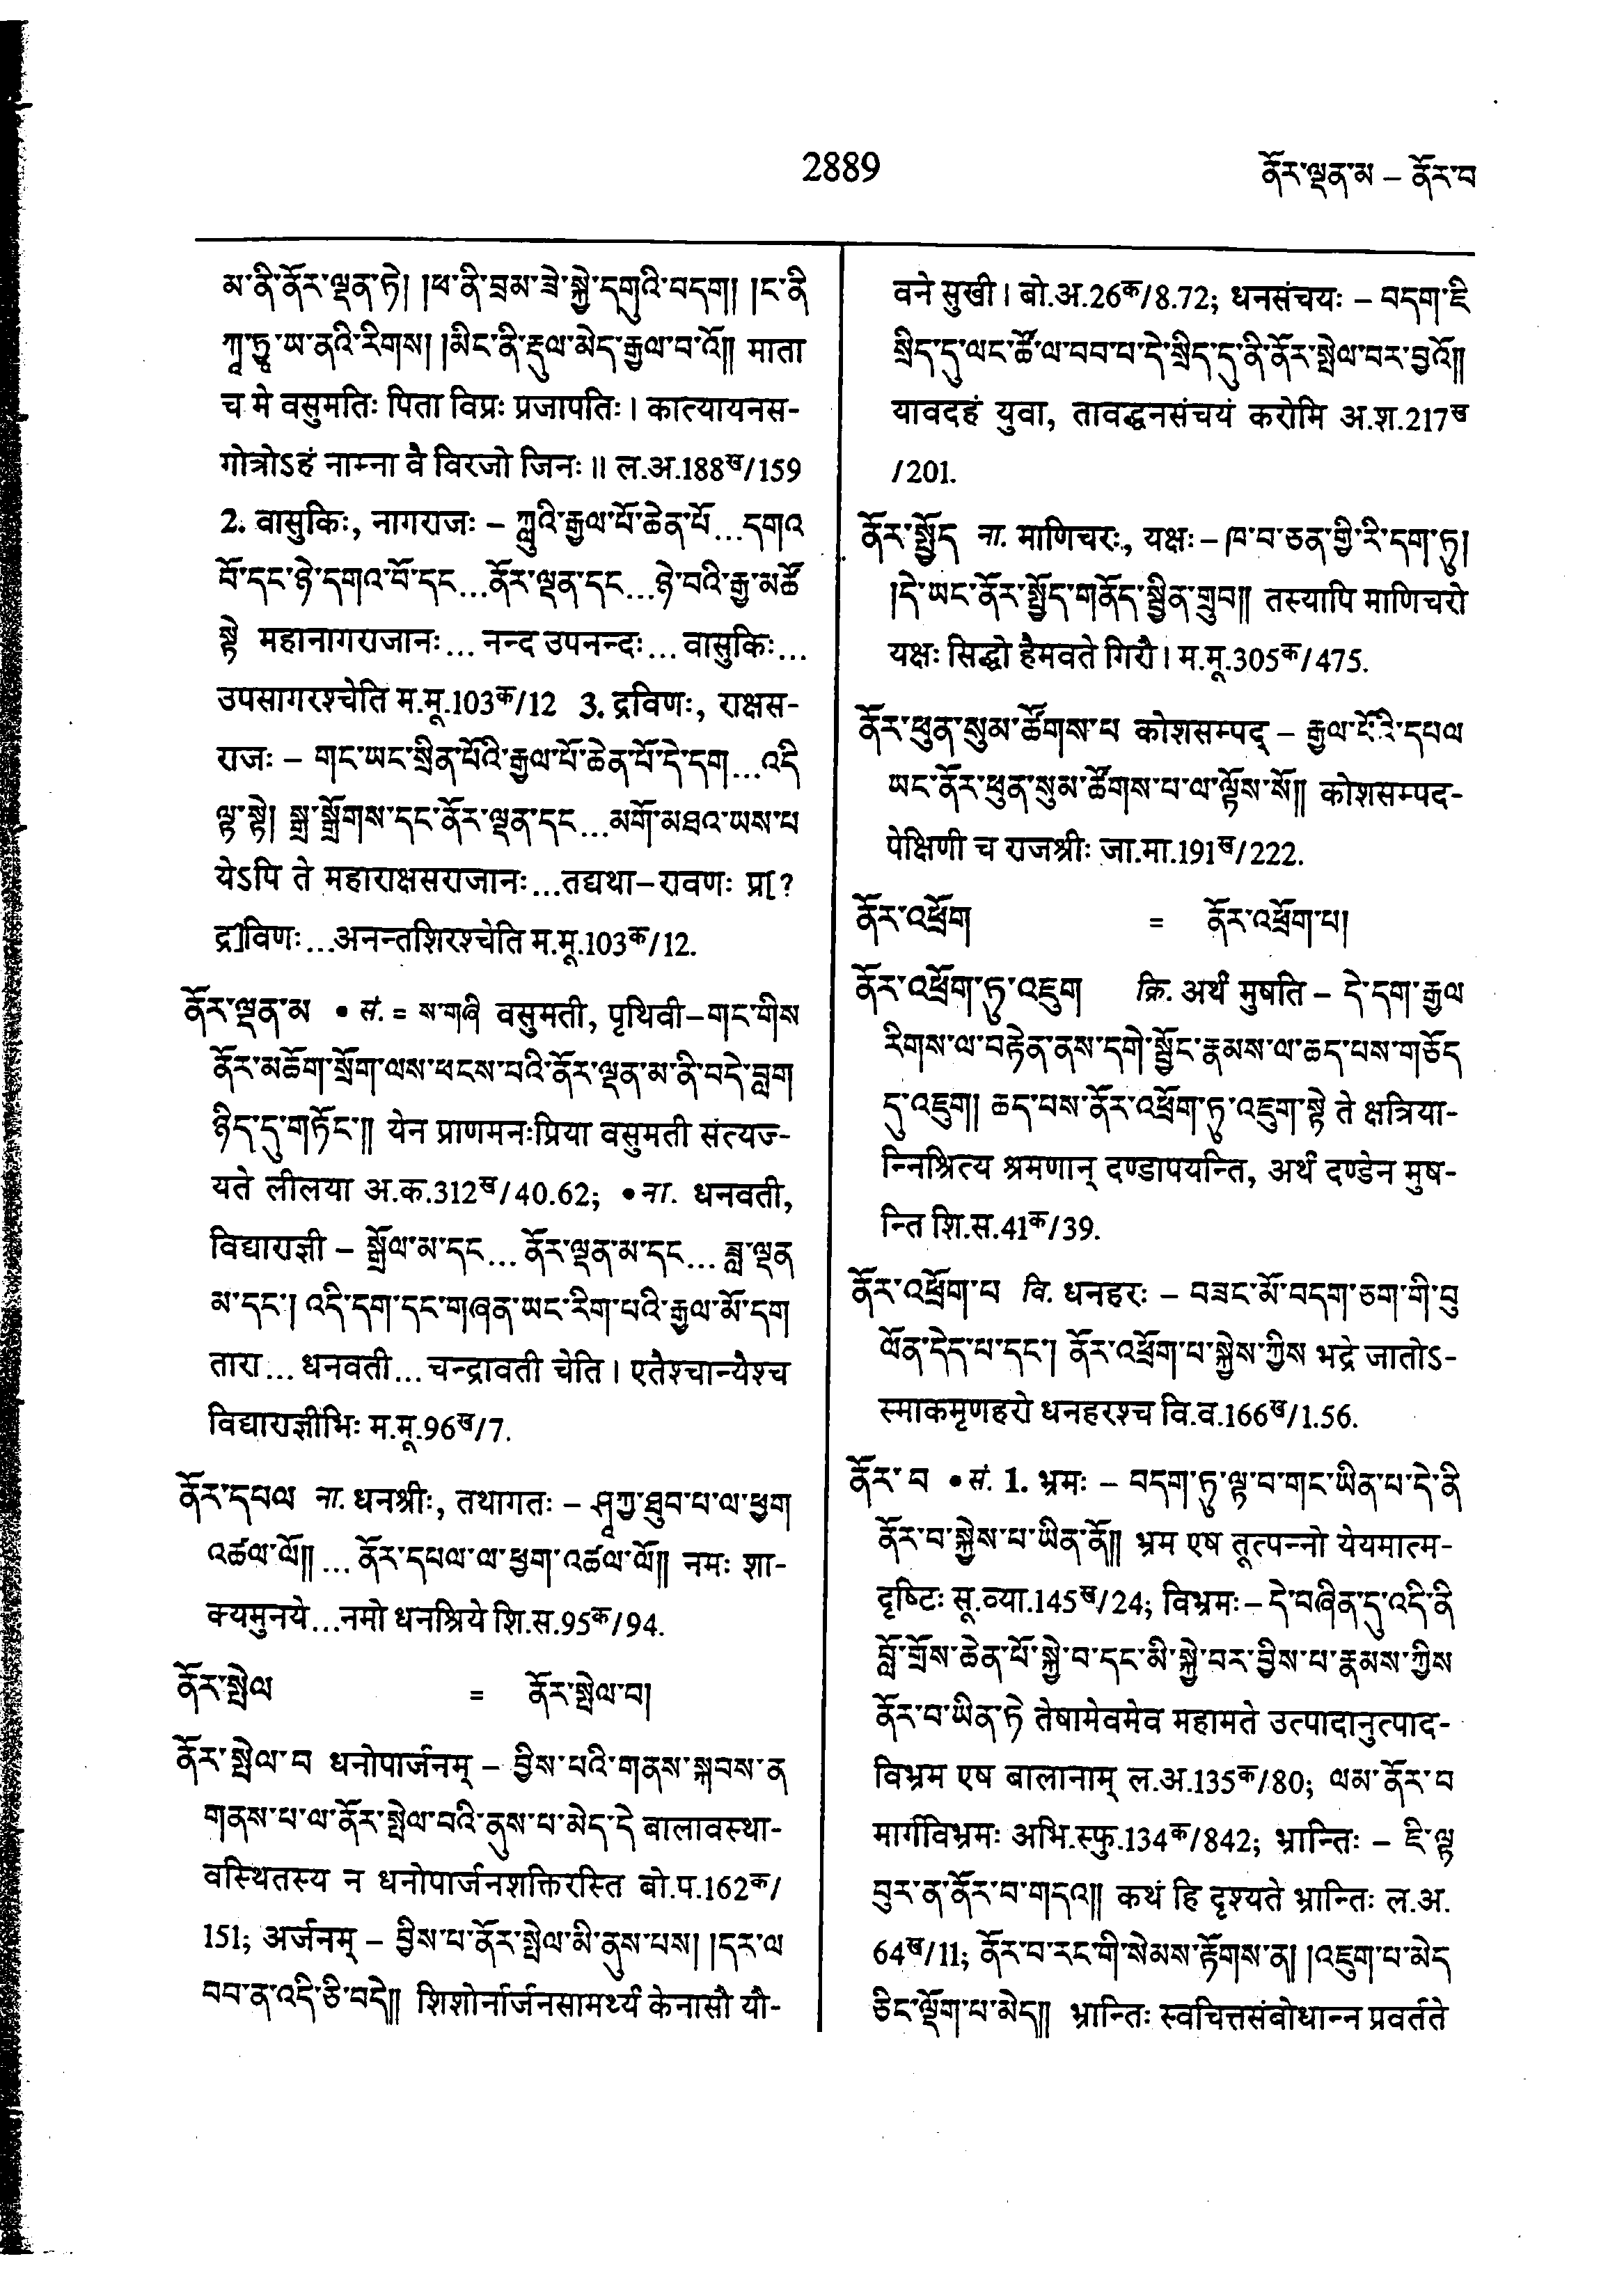 2889
ནོར་ལྡན་མ – ནོར་བ
མ་ནི་ནོར་ལྡན་ཏེ། །ཕ་ནི་བྲམ་ཟེ་སྐྱེ་དགུའི་བདག། །ང་ནི
ཀཱ་ཏྱཱ་ཡ་ནའི་རིགས། །མིང་ནི་རྡུལ་མེད་རྒྱལ་བ་འོ།། माता
च मे वसुमतिः पिता विप्रः प्रजापतिः। कात्यायनस-
गोत्रोऽहं नाम्ना वै विरजो जिनः॥ ल.अ.188ख/159
2. वासुकिः, नागराजः – ཀླུའི་རྒྱལ་པོ་ཆེན་པོ...དགའ
བོ་དང་ཉེ་དགའ་བོ་དང...ནོར་ལྡན་དང...ཉེ་བའི་རྒྱ་མཚོ
སྟེ महानागराजानः... नन्द उपनन्दः... वासुकिः...
उपसागरश्चेति म.मू.103क/12 3. द्रविणः, राक्षस-
राजः – གང་ཡང་སྲིན་པོའི་རྒྱལ་པོ་ཆེན་པོ་དེ་དག...འདི
ལྟ་སྟེ། སྒྲ་སྒྲོགས་དང་ནོར་ལྡན་དང...མགོ་མཐའ་ཡས་པ
येऽपि ते महाराक्षसराजानः...तद्यथा–रावणः प्र[?
द्र]विणः...अनन्तशिरश्चेति म.मू.103क/12.
ནོར་ལྡན་མ • सं. = ས་གཞི वसुमती, पृथिवी–གང་གིས
ནོར་མཆོག་སྲོག་ལས་ཕངས་བའི་ནོར་ལྡན་མ་ནི་བདེ་བླག
ཉིད་དུ་གཏོང་།། येन प्राणमनःप्रिया वसुमती संत्यज-
यते लीलया अ.क.312ख/40.62; • ना. धनवती,
विद्याराज्ञी – སྒྲོལ་མ་དང... ནོར་ལྡན་མ་དང... ཟླ་ལྡན
མ་དང་། འདི་དག་དང་གཞན་ཡང་རིག་པའི་རྒྱལ་མོ་དག
तारा... धनवती... चन्द्रावती चेति। एतैश्चान्यैश्च
विद्याराज्ञीभिः म.मू.96ख/7.
ནོར་དཔལ ना. धनश्रीः, तथागतः – ཤཱཀྱ་ཐུབ་པ་ལ་ཕྱག
འཚལ་ལོ།།... ནོར་དཔལ་ལ་ཕྱག་འཚལ་ལོ།། नमः शा-
क्यमुनये...नमो धनश्रिये शि.स.95क/94.
ནོར་སྤེལ = ནོར་སྤེལ་བ།
ནོར་སྤེལ་བ धनोपार्जनम् – བྱིས་པའི་གནས་སྐབས་ན
གནས་པ་ལ་ནོར་སྤེལ་བའི་ནུས་པ་མེད་དེ बालावस्था-
वस्थितस्य न धनोपार्जनशक्तिरस्ति बो.प.162क/
151; अर्जनम् – བྱིས་པ་ནོར་སྤེལ་མི་ནུས་པས། །དར་ལ
བབ་ན་འདི་ཅི་བདེ།། शिशोर्नार्जनसामर्थ्यं केनासौ यौ-
वने सुखी। बो.अ.26क/8.72; धनसंचयः – བདག་ཇི
སྲིད་དུ་ལང་ཚོ་ལ་བབ་པ་དེ་སྲིད་དུ་ནི་ནོར་སྤེལ་བར་བྱའོ།།
यावदहं युवा, तावद्धनसंचयं करोमि अ.श.217ख
/201.
ནོར་སྤྱོད ना. माणिचरः, यक्षः – ཁ་བ་ཅན་གྱི་རི་དག་ཏུ།
།དེ་ཡང་ནོར་སྤྱོད་གནོད་སྦྱིན་གྲུབ།། तस्यापि माणिचरो
यक्षः सिद्धो हैमवते गिरौ। म.मू.305क/475.
ནོར་ཕུན་སུམ་ཚོགས་པ कोशसम्पद् – རྒྱལ་པོའི་དཔལ
ཡང་ནོར་ཕུན་སུམ་ཚོགས་པ་ལ་ལྟོས་སོ།། कोशसम्पद-
पेक्षिणी च राजश्रीः जा.मा.191ख/222.
ནོར་འཕྲོག = ནོར་འཕྲོག་པ།
ནོར་འཕྲོག་ཏུ་འཇུག क्रि. अर्थं मुषति – དེ་དག་རྒྱལ
རིགས་ལ་བརྟེན་ནས་དགེ་སྦྱོང་རྣམས་ལ་ཆད་པས་གཅོད
དུ་འཇུག། ཆད་པས་ནོར་འཕྲོག་ཏུ་འཇུག་སྟེ ते क्षत्रिया-
न्निश्रित्य श्रमणान् दण्डापयन्ति, अर्थं दण्डेन मुष-
न्ति शि.स.41क/39.
ནོར་འཕྲོག་པ वि. धनहरः – བཟང་མོ་བདག་ཅག་གི་བུ
ལོན་དེད་པ་དང་། ནོར་འཕྲོག་པ་སྐྱེས་ཀྱིས भद्रे जातोऽ-
स्माकमृणहरो धनहरश्च वि.व.166ख/1.56.
ནོར་བ • सं. 1. भ्रमः – བདག་ཏུ་ལྟ་བ་གང་ཡིན་པ་དེ་ནི
ནོར་བ་སྐྱེས་པ་ཡིན་ནོ།། भ्रम एष तूत्पन्नो येयमात्म-
दृष्टिः सू.व्या.145ख/24; विभ्रमः – དེ་བཞིན་དུ་འདི་ནི
བློ་གྲོས་ཆེན་པོ་སྐྱེ་བ་དང་མི་སྐྱེ་བར་བྱིས་པ་རྣམས་ཀྱིས
ནོར་བ་ཡིན་ཏེ तेषामेवमेव महामते उत्पादानुत्पाद-
विभ्रम एष बालानाम् ल.अ.135क/80; ལམ་ནོར་བ
मार्गविभ्रमः अभि.स्फु.134क/842; भ्रान्तिः – ཇི་ལྟ
བུར་ན་ནོར་བ་གདའ།། कथं हि दृश्यते भ्रान्तिः ल.अ.
64ख/11; ནོར་བ་རང་གི་སེམས་རྟོགས་ན། །འཇུག་པ་མེད
ཅིང་ལྡོག་པ་མེད།། भ्रान्तिः स्वचित्तसंबोधान्न प्रवर्तते